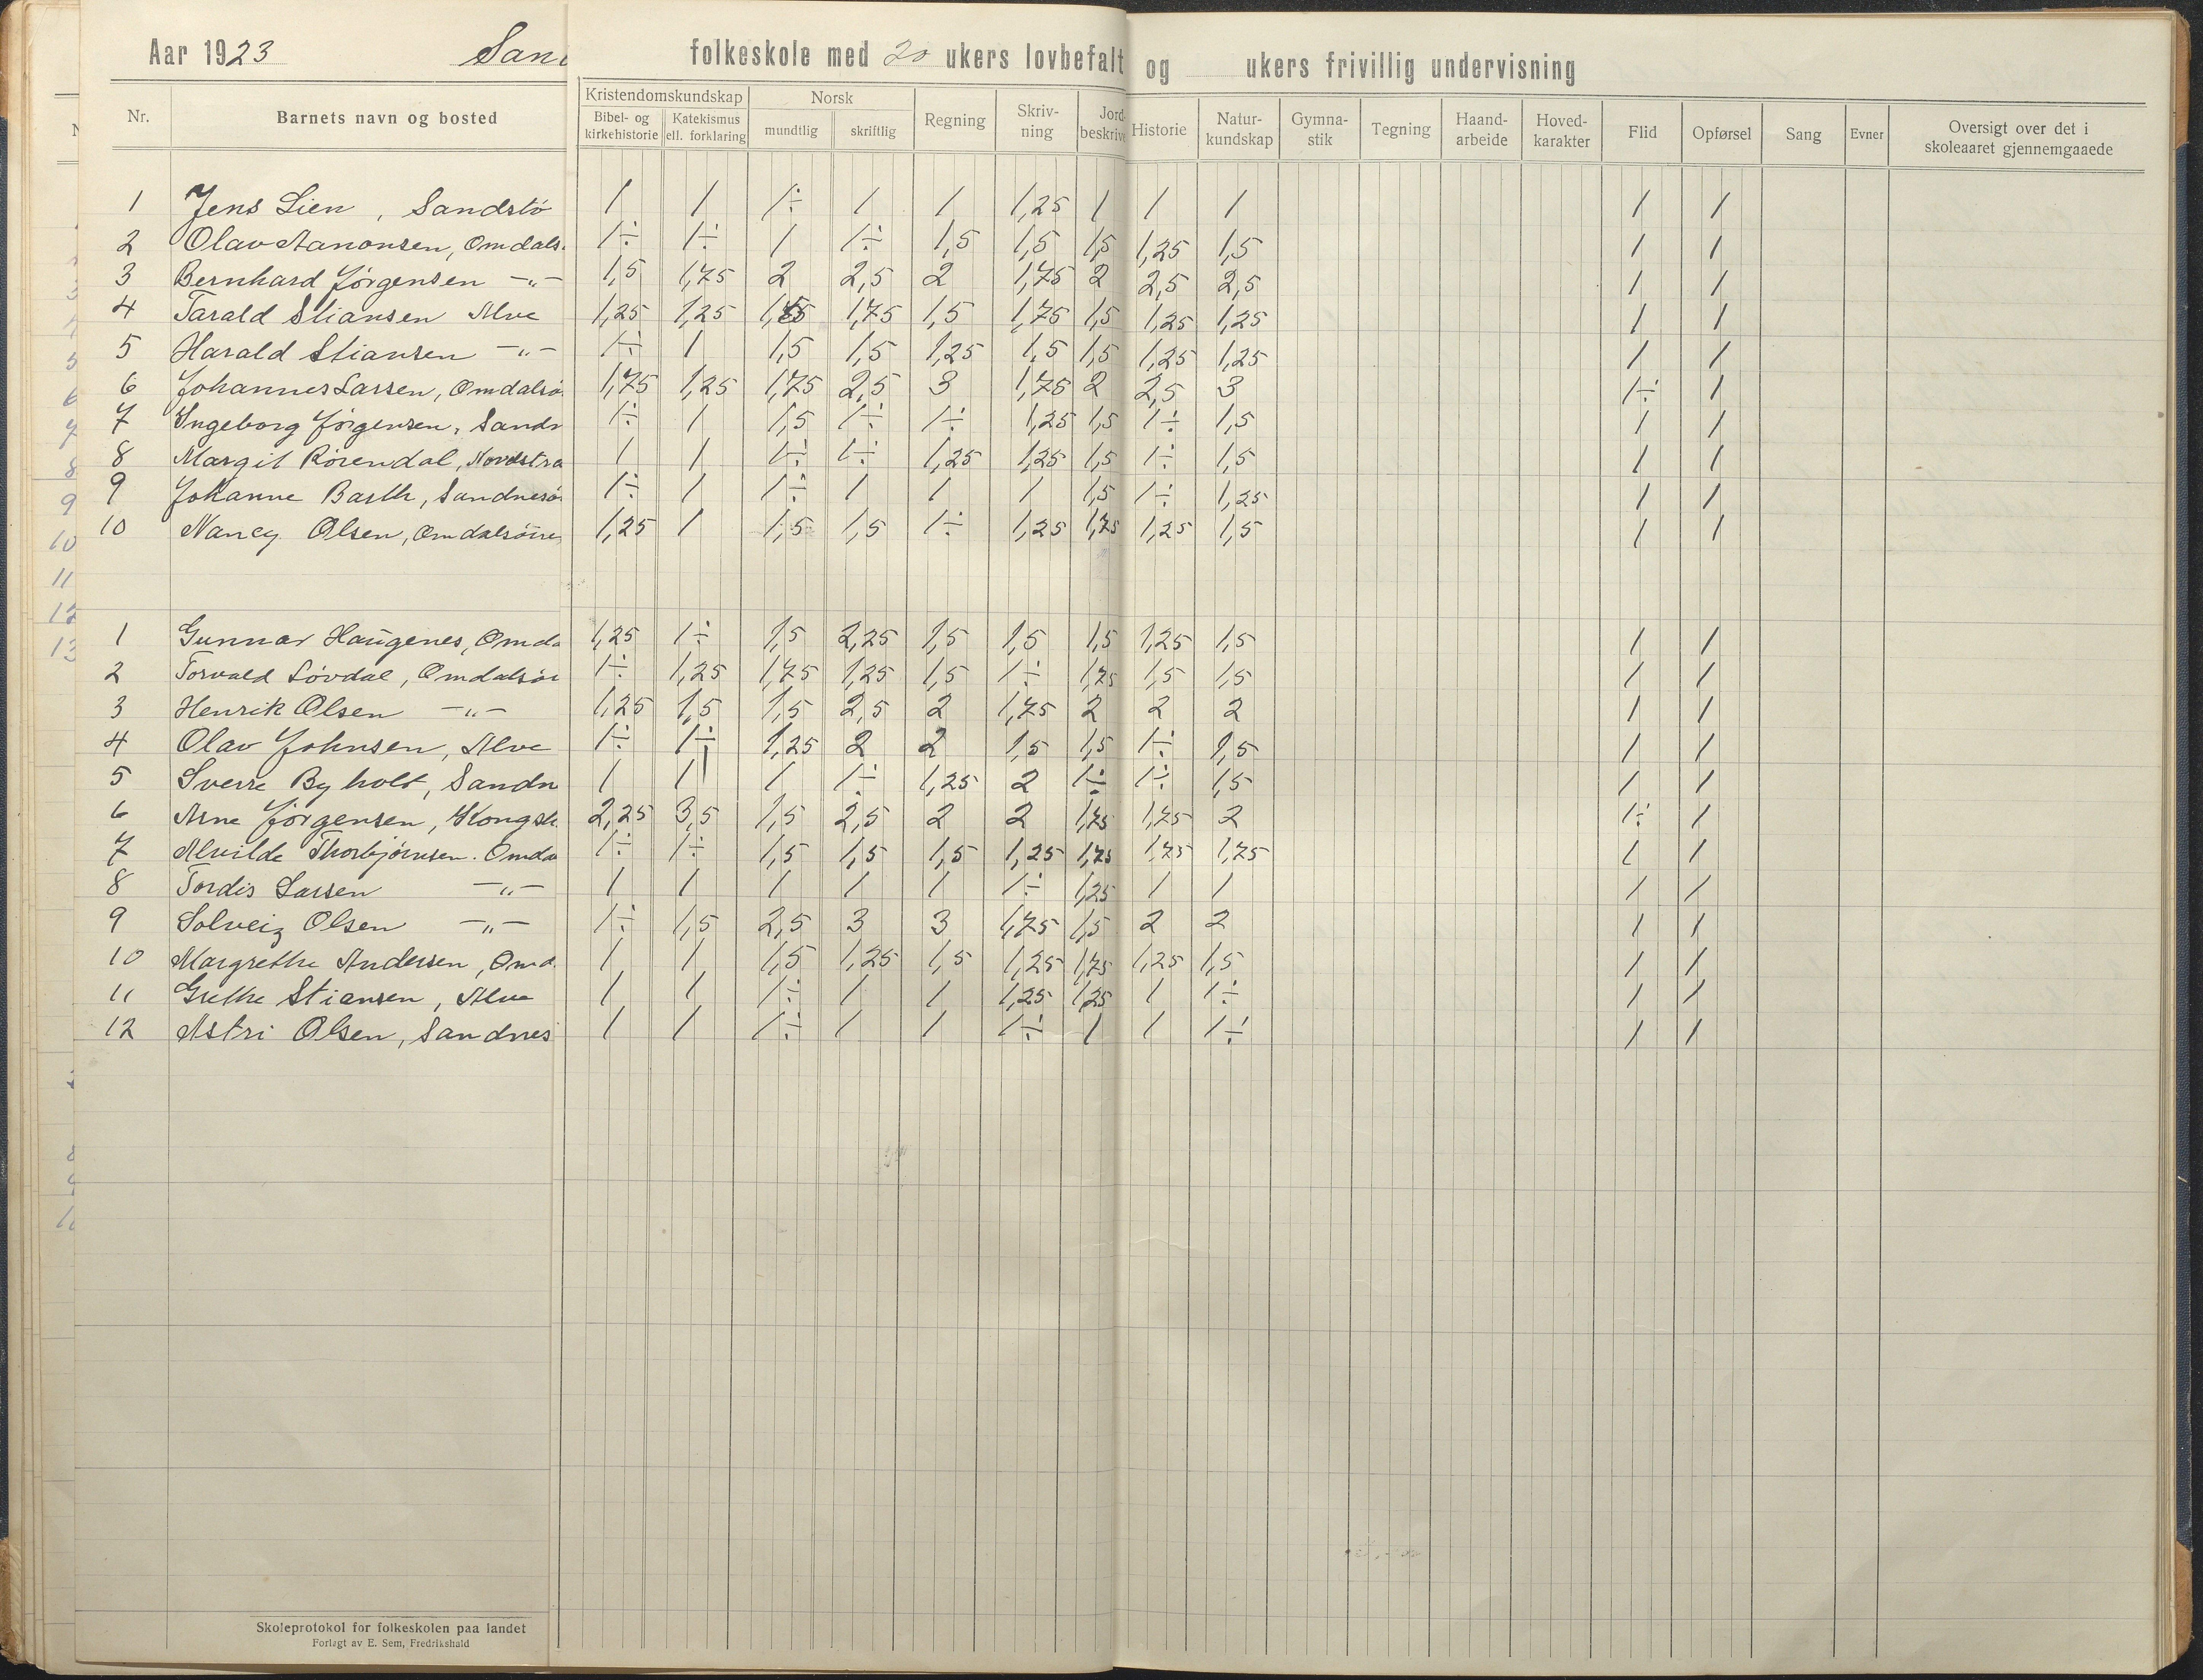 Aar 1923 San folkeskole med 20 ukers lovbefalt og ukers frivillig undervisning
Nr. Barnets navn og bosted Kristendomskundskap Norsk Regning Skriv-ning Jord-beskriv Historie Natur-kundskap Gymna-stik Tegning Haand-arbeide Hoved-karakter Flid Opførsel Sang Evner Oversigt over det i skoleaaret gjennemgaaede
Bibel- og kirkehistorie Katekismus ell. forklaring mundtlig skriftlig
1 Jens Lien, Sandstø 1 1 1÷ 1 1 1,25 1 1 1 1 1
2 Olav Aanonsen, Omdals 1÷ 1÷ 1 1÷ 1,5 1,5 1,5 1,25 1,5 1 1
3 Bernhard Jørgensen —„— 1,5 1,75 2 2,5 2 1,75 2 2,5 2,5 1 1
4 Tarald Stiansen Alve 1,25 1,25 1,75 1,5 1,75 1,5 1,25 1,25 1 1
5 Harald Stiansen —„— 1÷ 1 1,5 1,5 1,25 1,5 1,5 1,25 1,25 1 1
6 Johannes Larsen, Omdalsø 1,75 1,25 1,75 2,5 3 1,75 2 2,5 3 1÷ 1
7 Ingeborg Jørgensen, Sandn 1÷ 1 1,5 1÷ 1÷ 1,25 1,5 1÷ 1,5 1 1
8 Margit Rørendal, Nordstra 1 1 1÷ 1÷ 1,25 1,25 1,5 1÷ 1,5 1 1
9 Johanne Barth, Sandnesø 1÷ 1 1÷ 1 1 1 1,5 1÷ 1,25 1 1
10 Nancy Olsen, Omdalsøire 1,25 1 1,5 1,5 1÷ 1,25 1,75 1,25 1,5 1 1
1 Gunnar Haugenes, Omda 1,25 1÷ 1,5 2,25 1,5 1,5 1,5 1,25 1,5 1 1
2 Torvald Løvdal, Omdalsøi 1÷ 1,25 1,75 1,25 1,5 1÷ 1,75 1,5 1,5 1 1
3 Henrik Olsen —„— 1,25 1,5 1,5 2,5 2 1,75 2 2 2 1 1
4 Olav Johnsen, Alve 1÷ 1÷ 1,25 2 2 1,5 1,5 1÷ 1,5 1 1
5 Sverre Byholt, Sandn 1 1 1 1÷ 1,25 2 1÷ 1÷ 1,5 1 1
6 Arne Jørgensen, Kongsh 2,25 3,5 1,5 2,5 2 2 1,75 1,75 2 1÷ 1
7 Alvilde Thorbjørnsen. Omda 1÷ 1÷ 1,5 1,5 1,5 1,25 1,75 1,75 1,75 1 1
8 Tordis Larsen —„— 1 1 1 1 1 1÷ 1,25 1 1 1 1
9 Solveig Olsen —„— 1÷ 1,5 2,5 3 3 1,75 1,5 2 2 1 1
10 Margrethe Andersen, Omd 1 1 1,5 1,25 1,5 1,25 1,75 1,25 1,5 1 1
11 Grethe Stiansen, Alve 1 1 1÷ 1 1 1,25 1,25 1 1÷ 1 1
12 Astri Olsen, Sandnes 1 1 1÷ 1 1 1÷ 1 1 1÷ 1 1
Skoleprotokol for folkeskolen paa landet
Forlagt av E. Sem, Fredrikshald